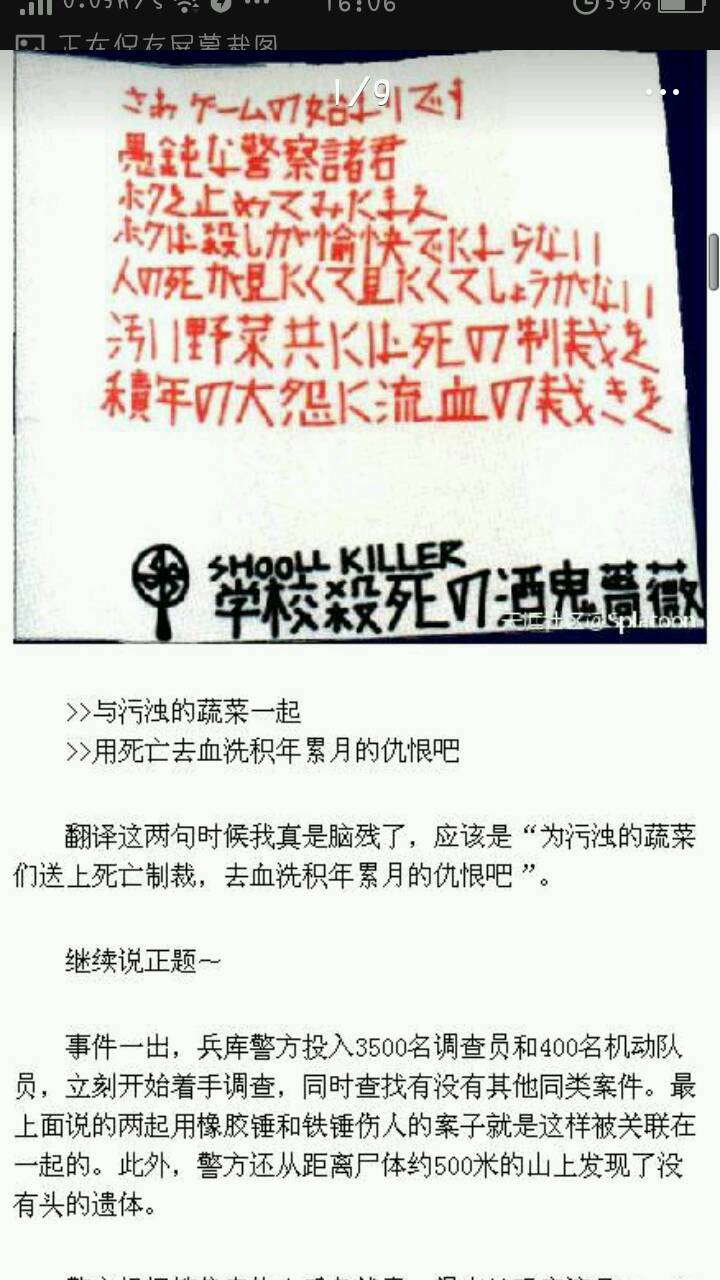 16:06
59%
正在保存屏幕截图
1/9
さあ ゲームの始まりです
愚鈍な警察諸君
ボクを止めてみたまえ
ボクは殺しが愉快でたまらない
人の死が見たくて見たくてしょうがない
汚い野菜共には死の制裁を
積年の大怨に流血の裁きを
SHOOLL KILLER
学校殺死の酒鬼薔薇
@Splatoon
>>与污浊的蔬菜一起
>>用死亡去血洗积年累月的仇恨吧
翻译这两句时候我真是脑残了，应该是“为污浊的蔬菜
们送上死亡制裁，去血洗积年累月的仇恨吧”。
继续说正题～
事件一出，兵库警方投入3500名调查员和400名机动队
员，立刻开始着手调查，同时查找有没有其他同类案件。最
上面说的两起用橡胶锤和铁锤伤人的案子就是这样被关联在
一起的。此外，警方还从距离尸体约500米的山上发现了没
有头的遗体。